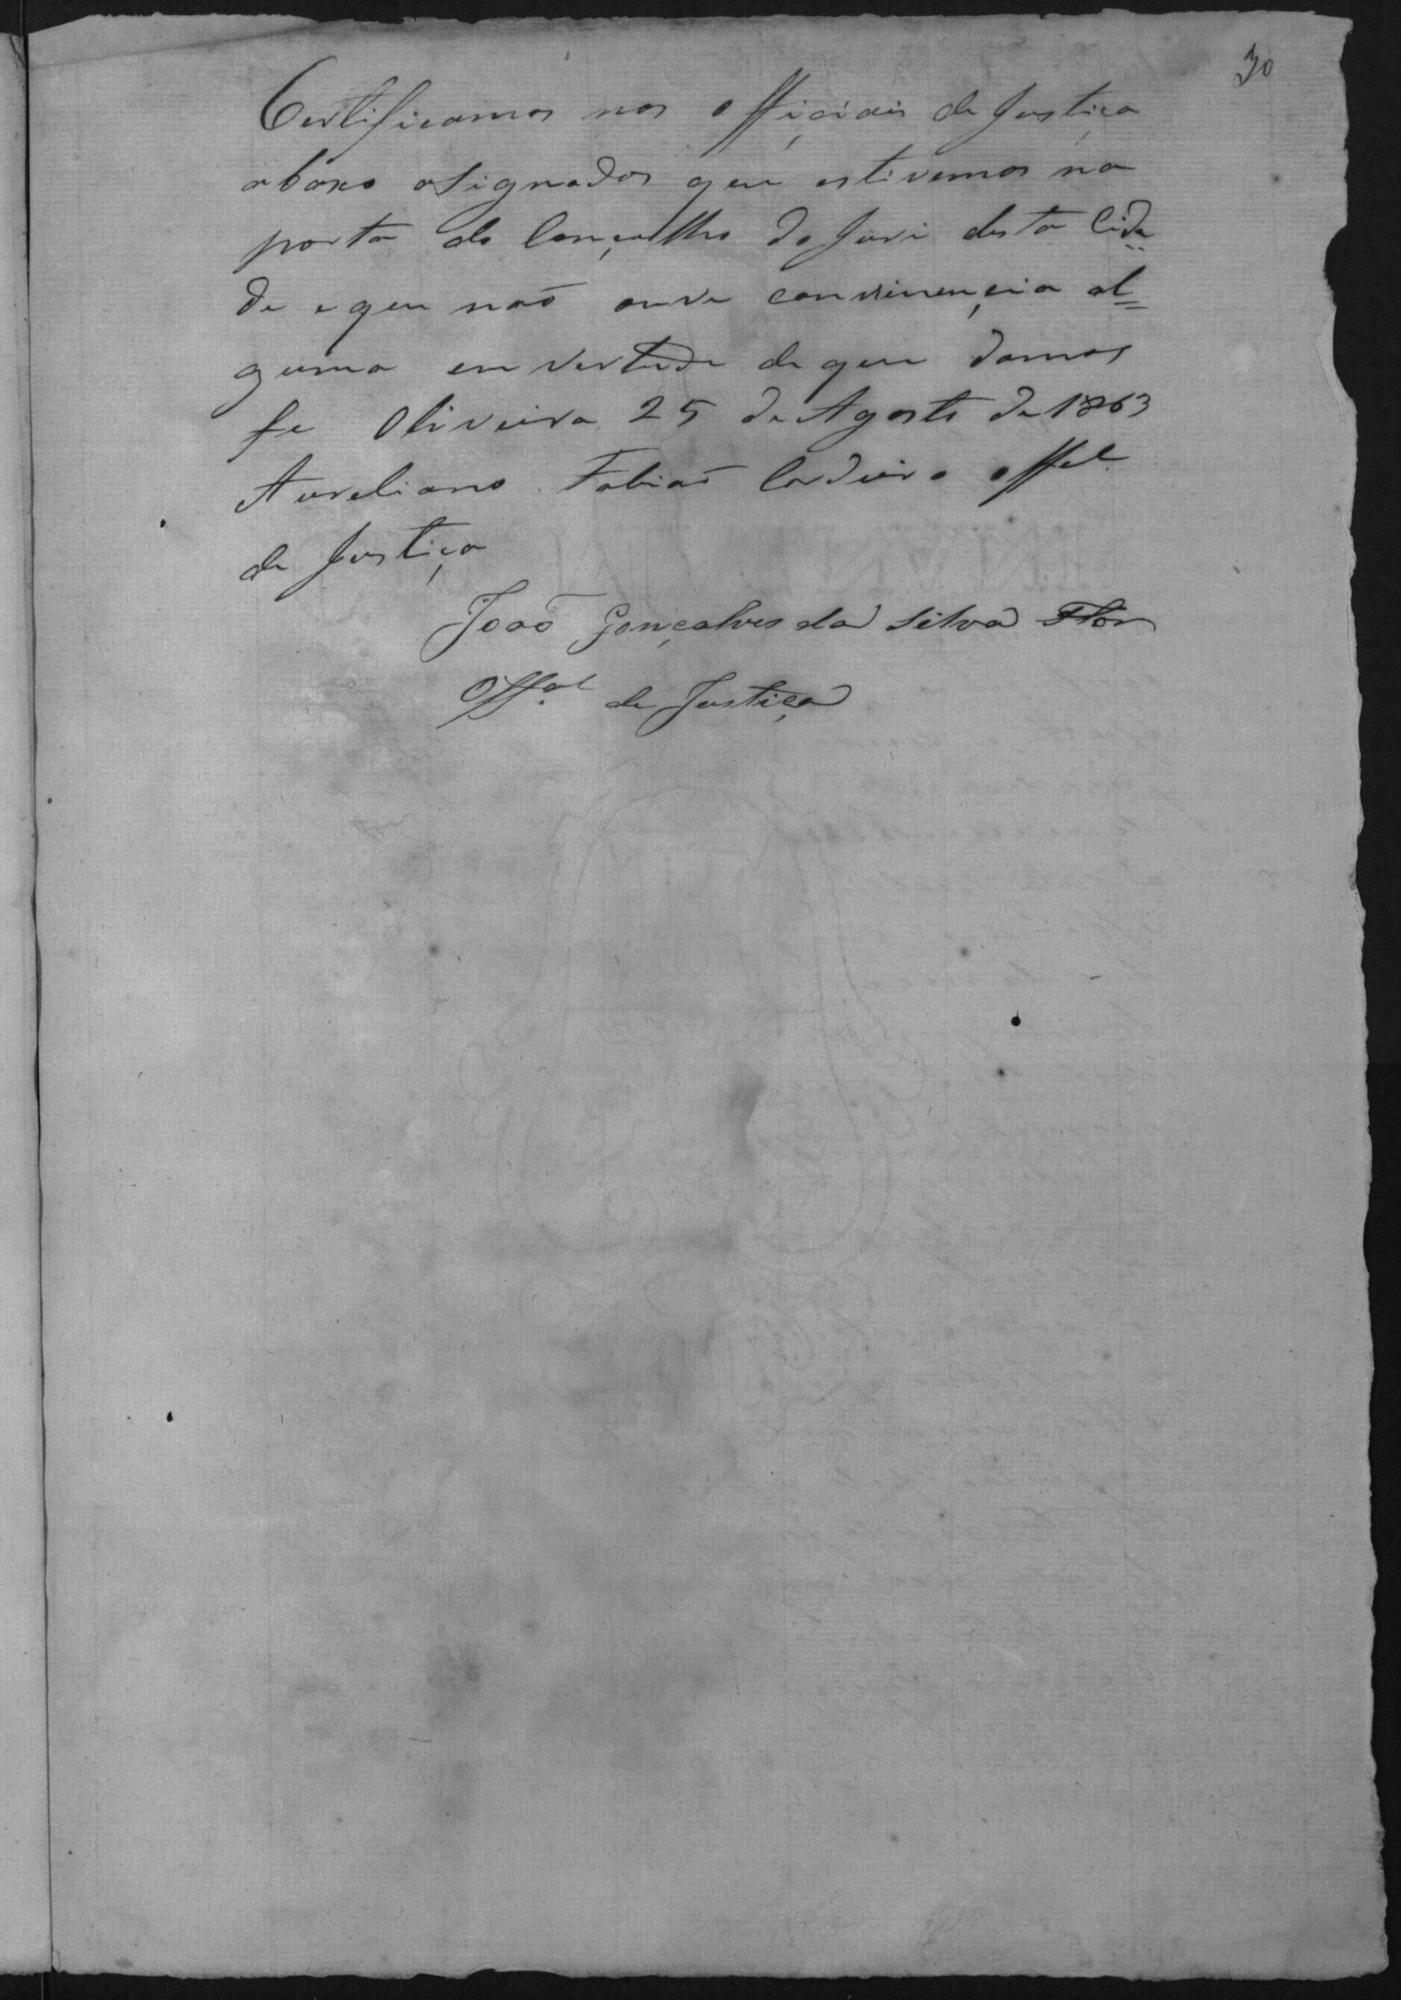 30
Certificamos nos officiais de Justiça
abaxo asignados que estivemos na
porta do Conçelho do Juri desta Cida
de e que naõ ouve convinençia al=
guma em vertude de que damos
fe Oliveira 25 de Agosto de 1863
Aureliano Fabiaõ Cordeiro offel
de Justiça
Joaõ Gonçalves da Silva Flor
Offal de Justiça